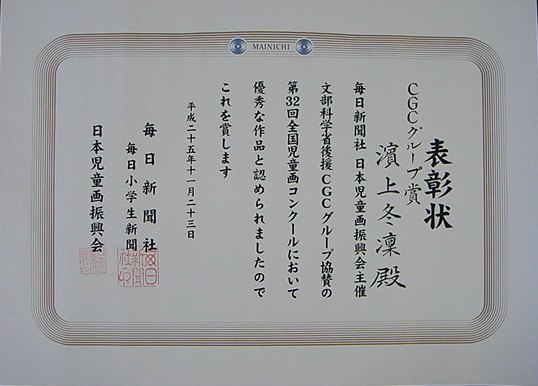 MAINICHI
表彰状
CGCグループ賞
濵上冬凜殿
毎日新聞社 日本児童画振興会主催
文部科学省後援 CGCグループ協賛の
第32回全国児童画コンクールにおいて
優秀な作品と認められましたので
これを賞します
平成二十五年十一月二十三日
毎日新聞社
毎日小学生新聞
日本児童画振興会